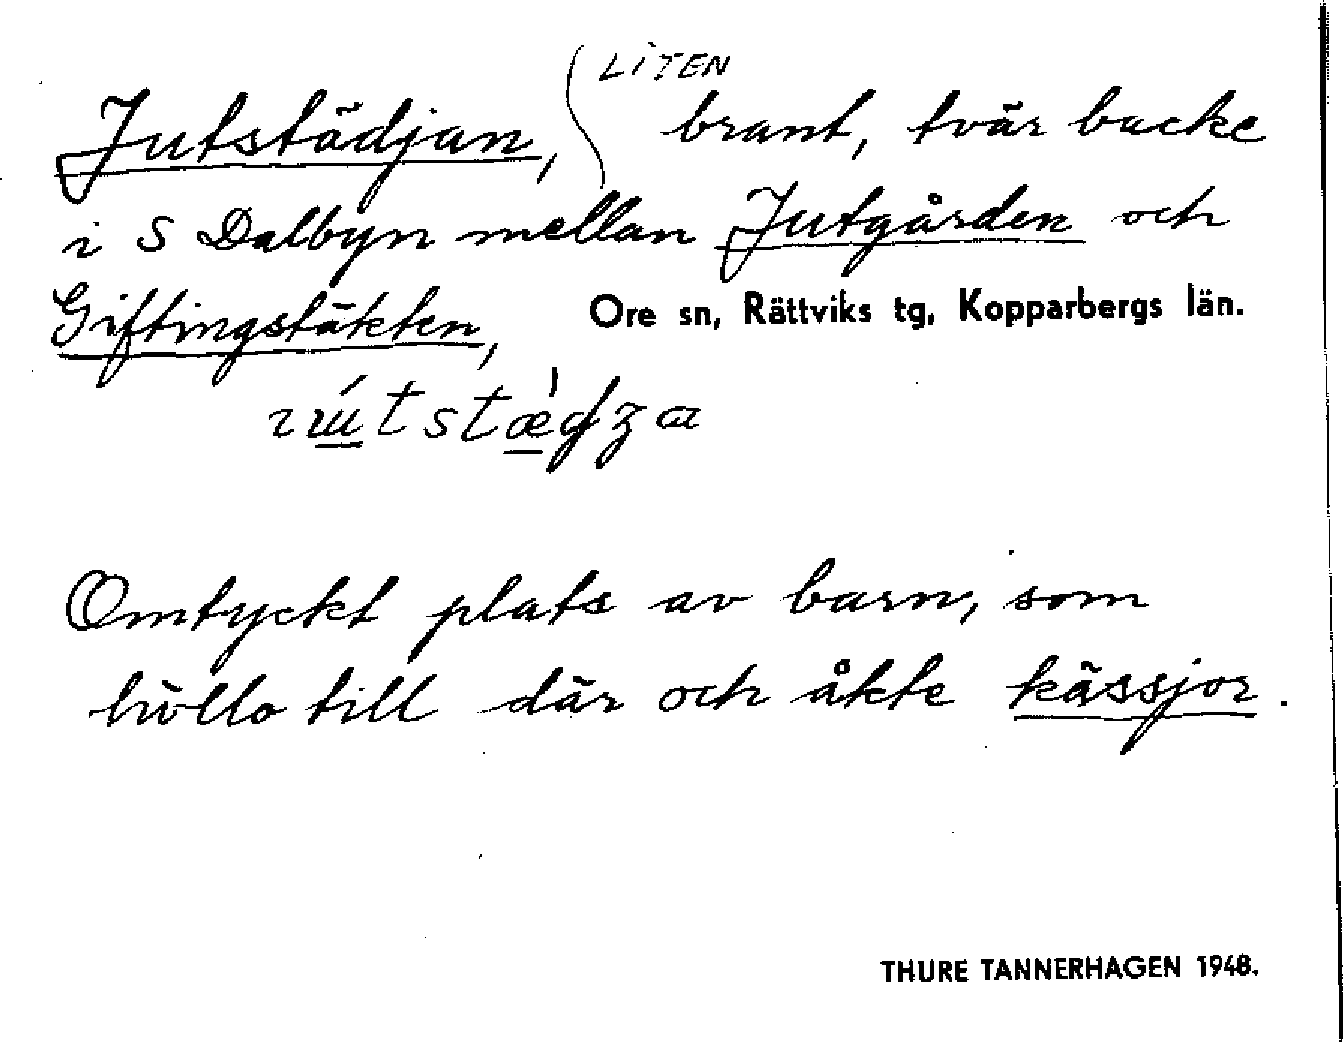 LITEN
Jutstädjan, brant, tvär backe
i S Dalbyn mellan Jutgården och
Giftingstäkten, Ore sn, Rättviks tg, Kopparbergs län.
Omtyckt plats av barn, som
höllo till där och åkte kässjor.
THURE TANNERHAGEN 1948.